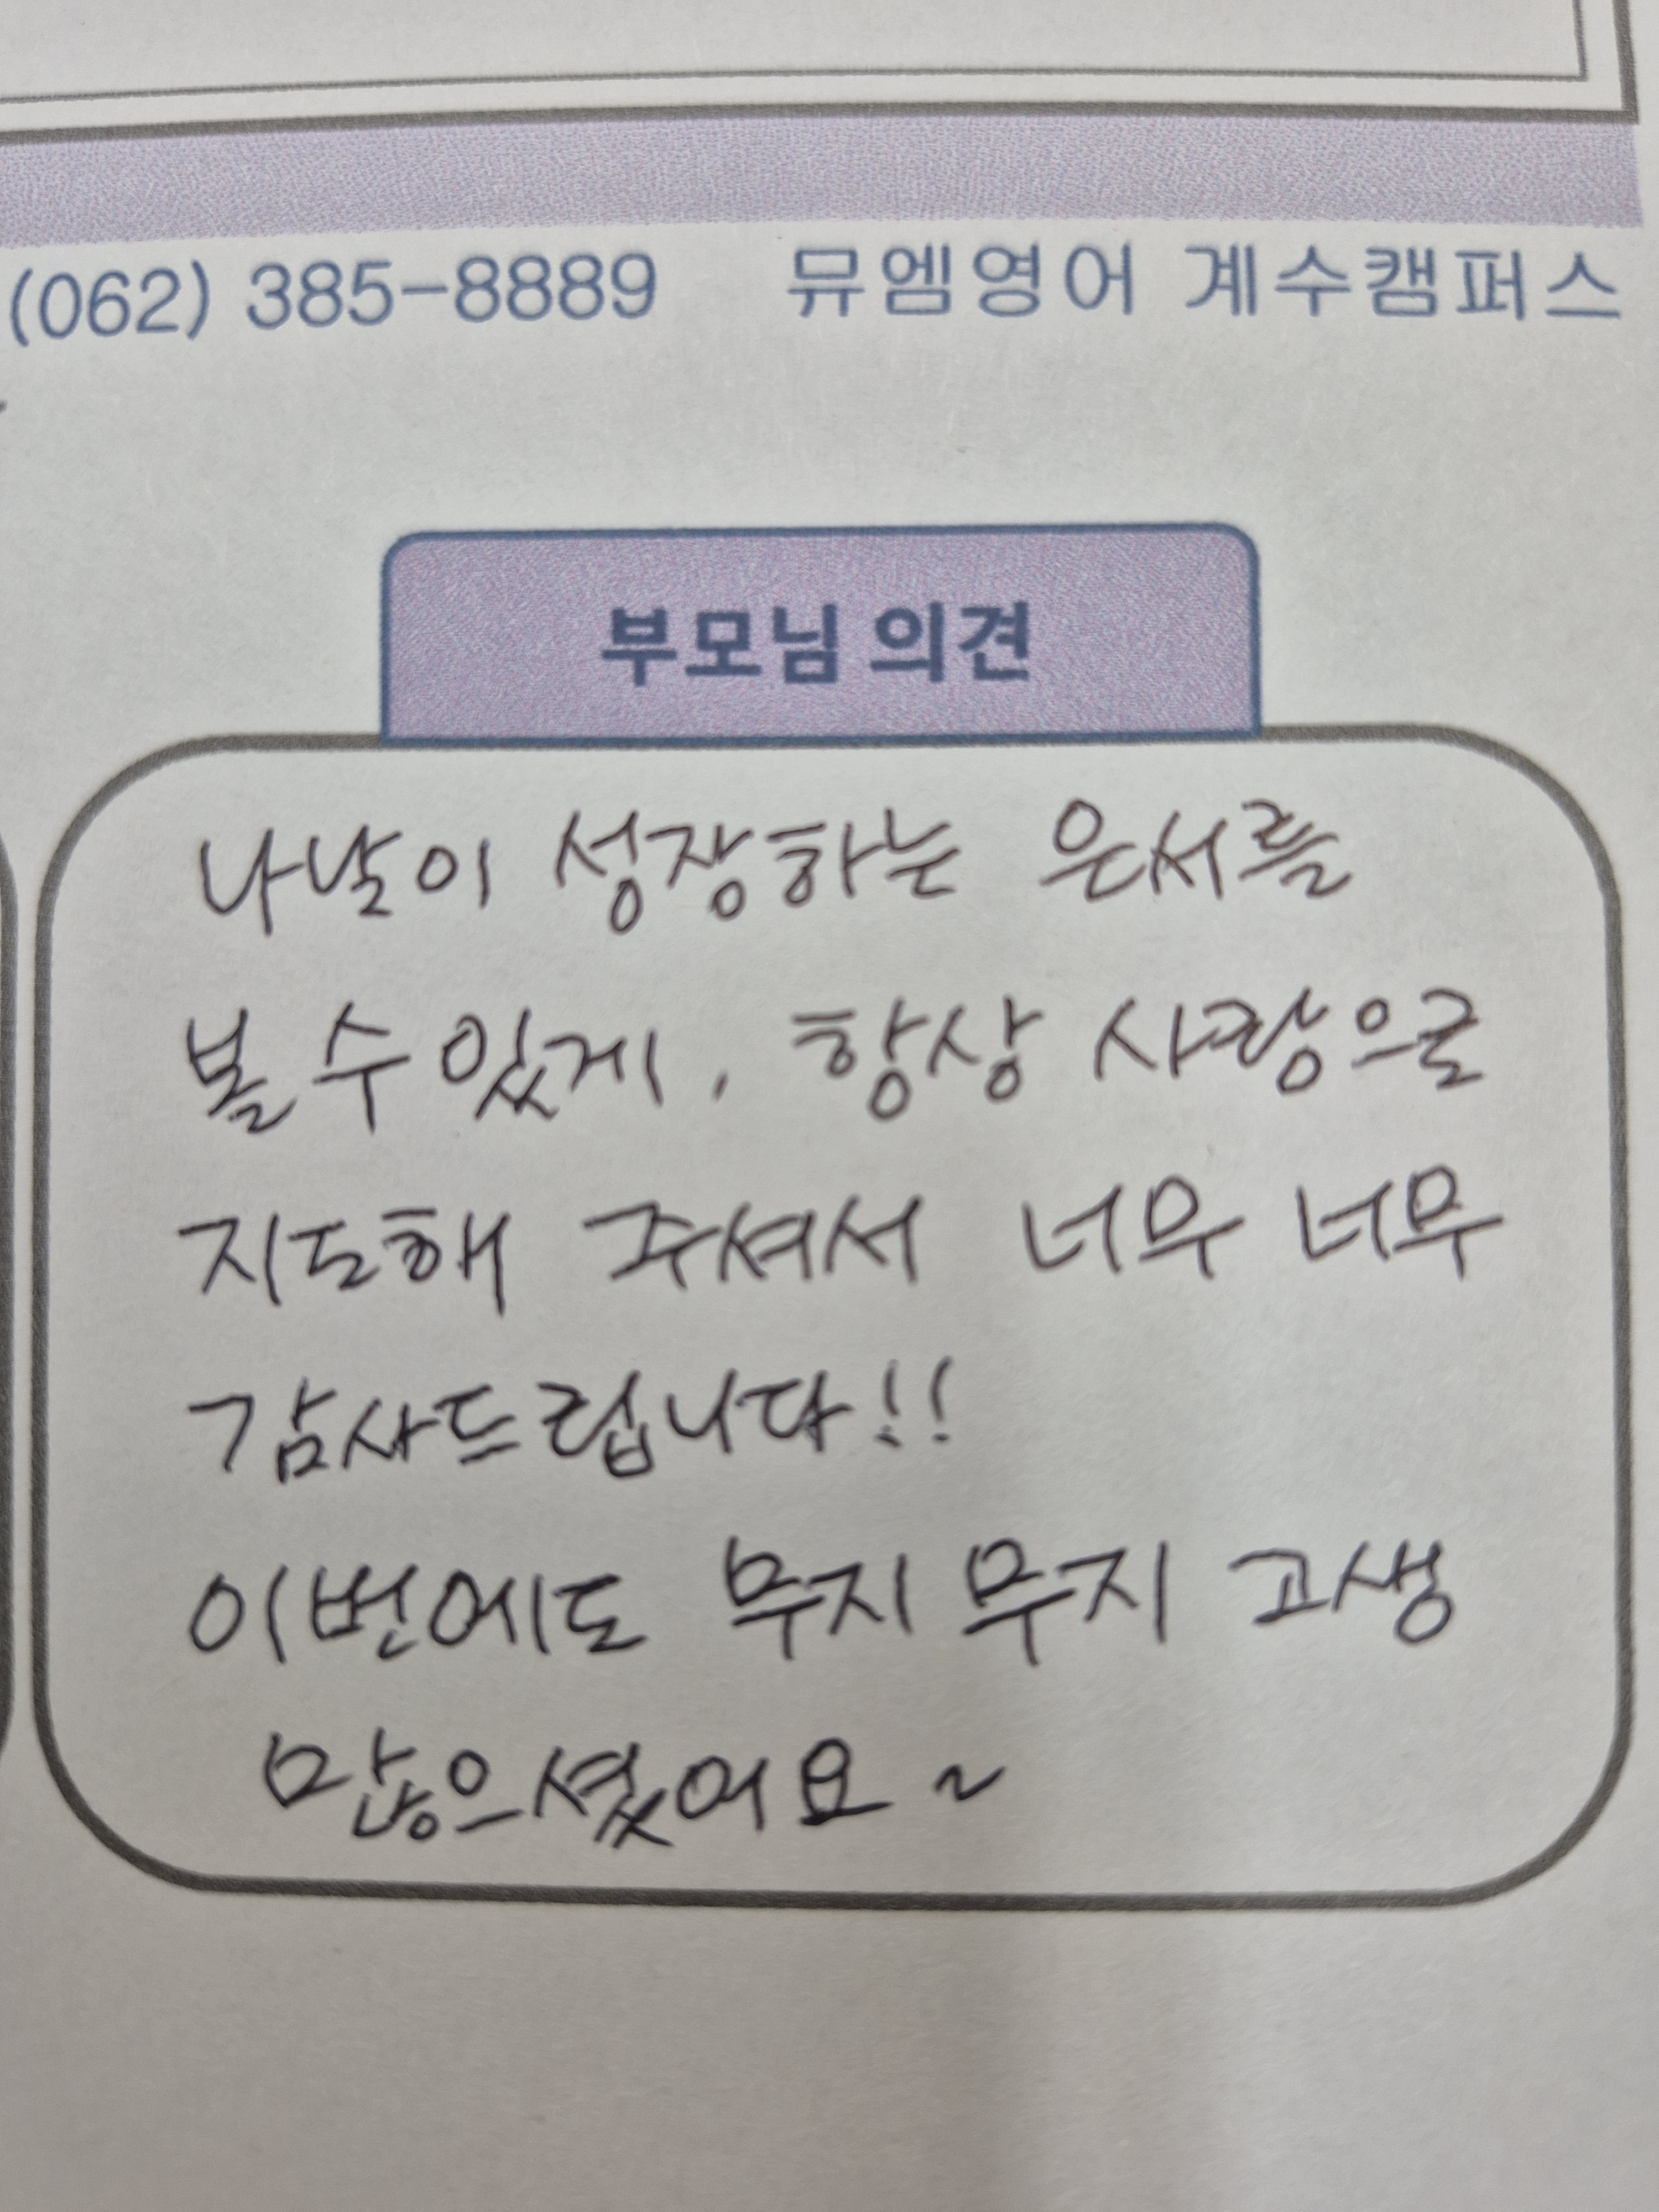 (062) 385-8889 뮤엠영어 계수캠퍼스
부모님 의견
나날이 성장하는 은서를
볼 수 있게, 항상 사랑으로
지도해 주셔서 너무 너무
감사드립니다!!
이번에도 무지 무지 고생
많으셨어요~